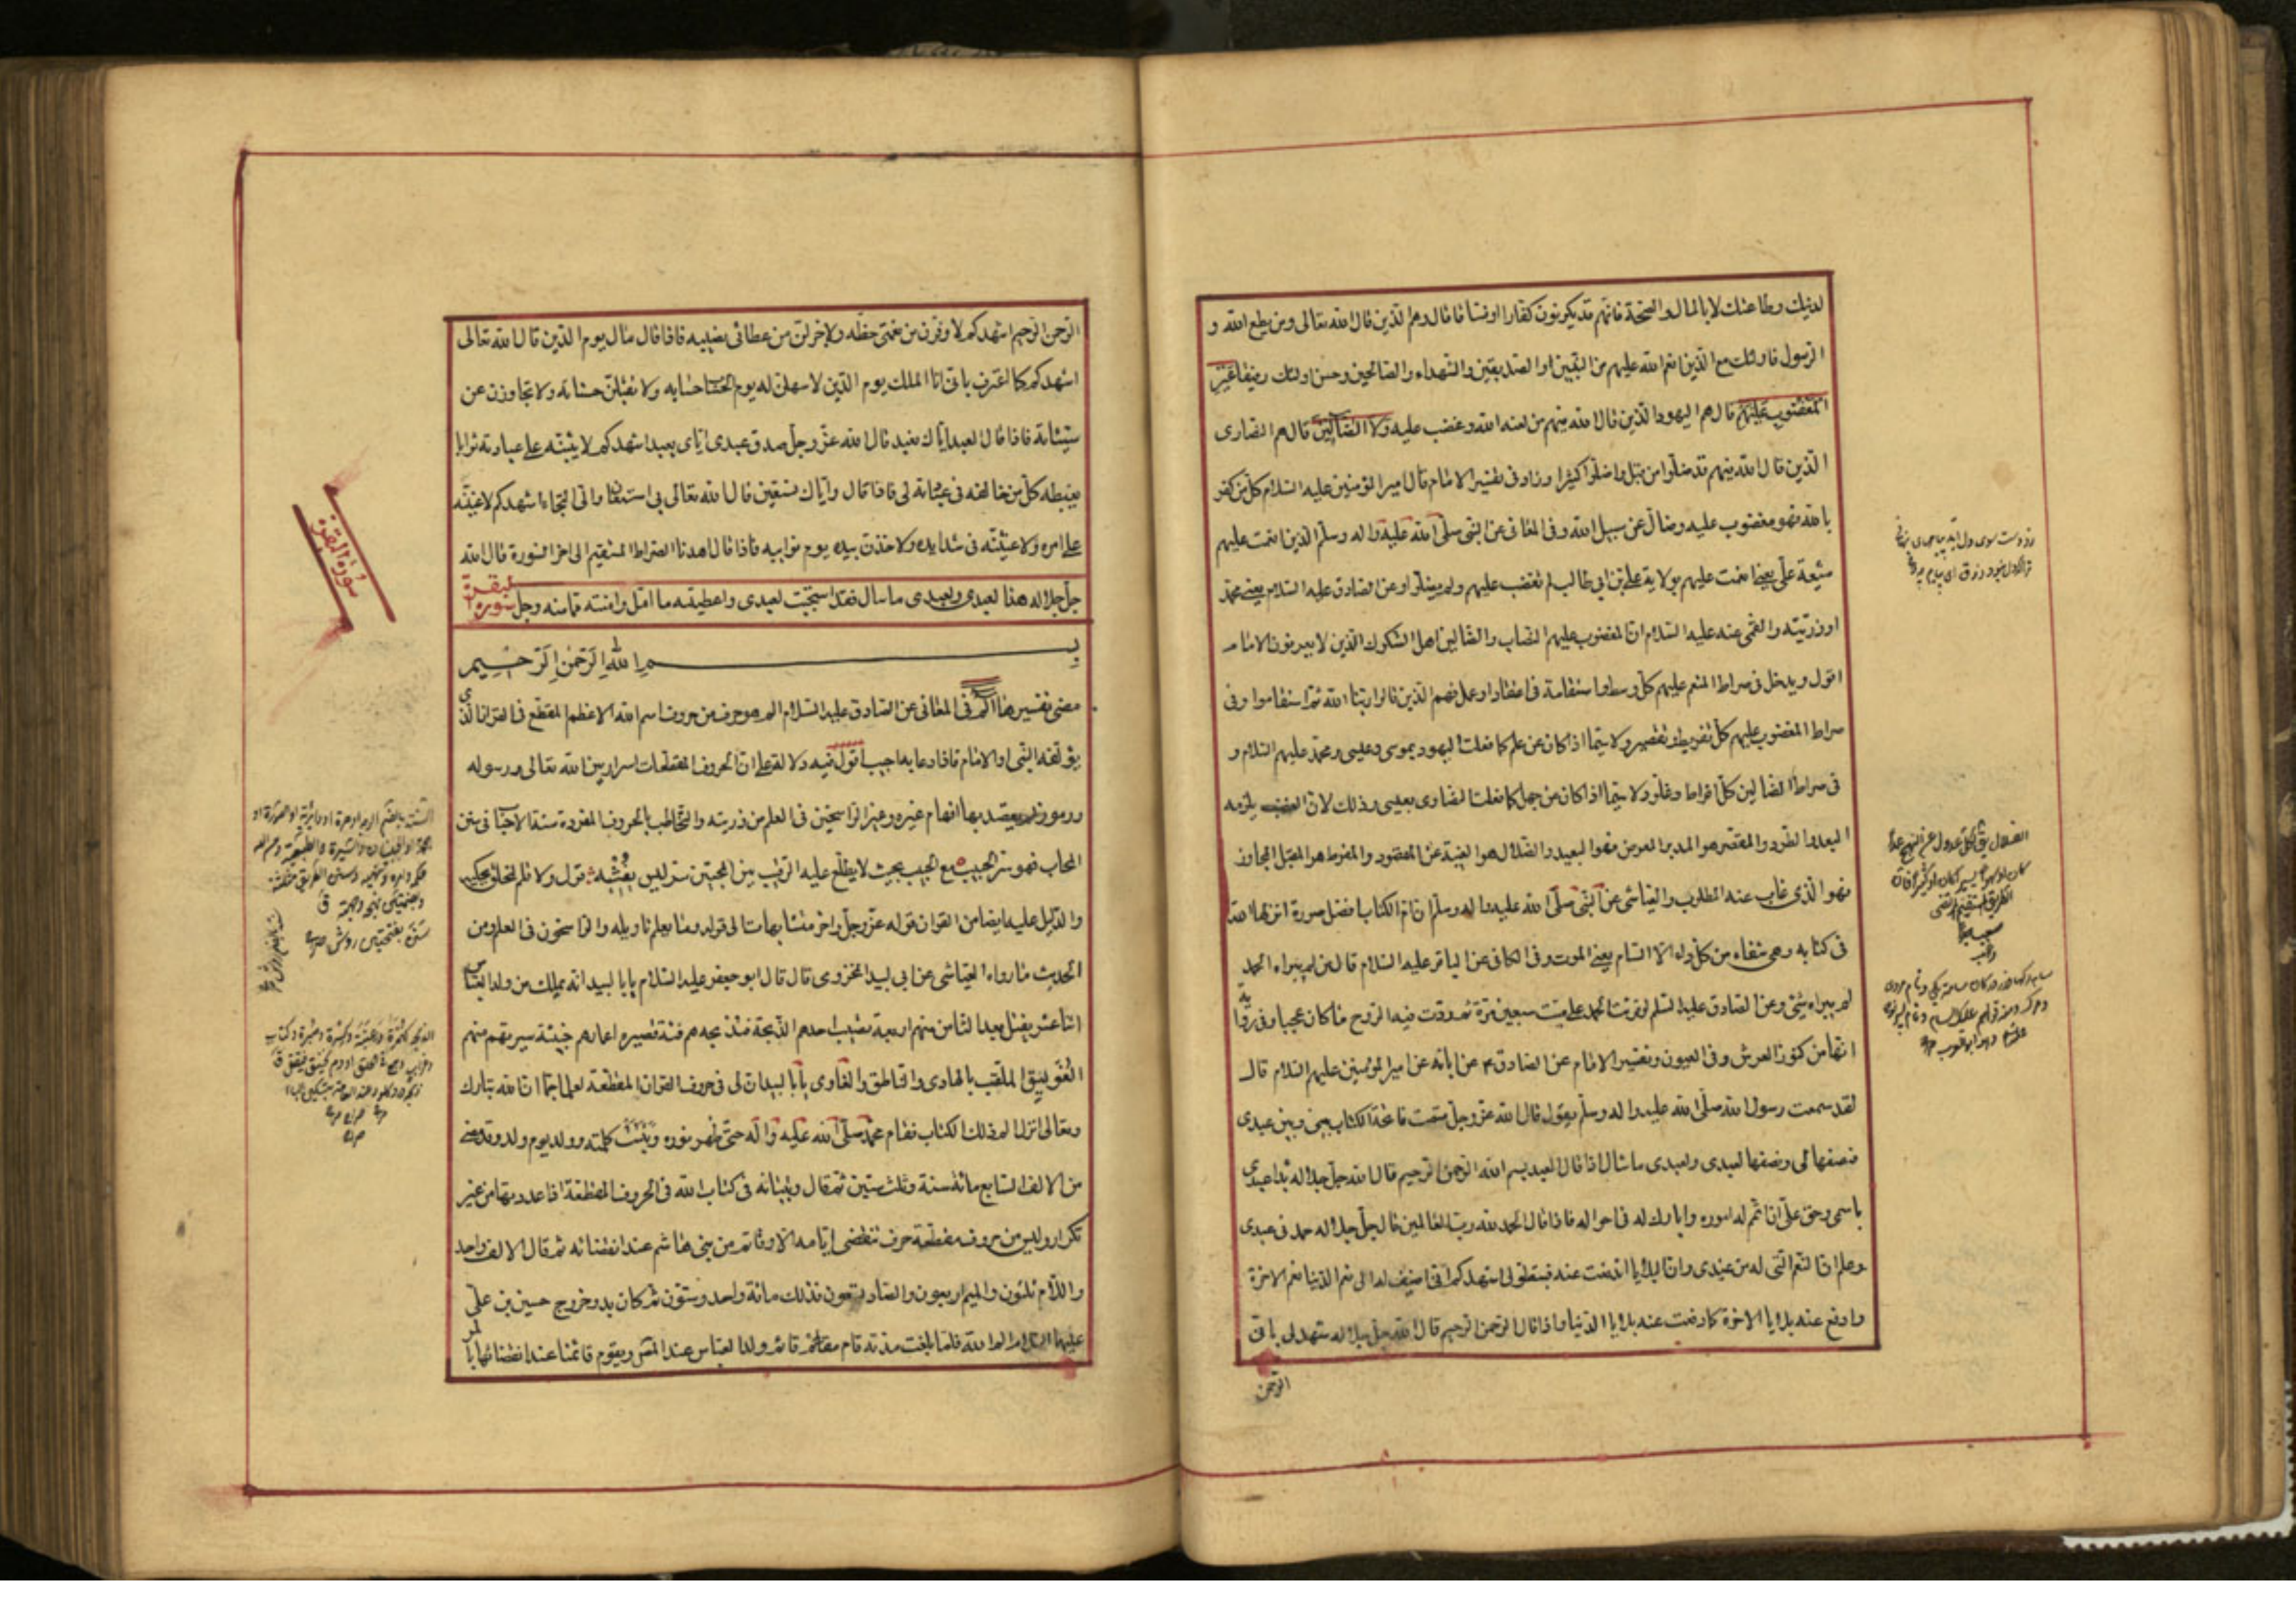 لدينك وطاعتك لا بالمال والصحة فانهم قد يكونون كفارا او فساقا قال وهم الذين قال الله تعالى ومن يطع الله و
الرسول فاولئك مع الذين انعم الله عليهم من النبيين والصديقين والشهداء والصالحين وحسن اولئك رفيقا غير
المغضوب عليهم قال هم اليهود الذين قال الله فيهم من لعنه الله وغضب عليه ولا الضالين قال هم النصارى
الذين قال الله فيهم قد ضلوا من قبل واضلوا كثيرا وزاد في تفسير الامام قال امير المؤمنين عليه السلام كل من كفر
بالله فهو مغضوب عليه وضال عن سبيل الله وفي المعاني عن النبي صلى الله عليه واله وسلم الذين انعمت عليهم
شيعة علي يعني انعمت عليهم بولاية علي بن ابي طالب لم تغضب عليهم ولم يضلوا وعن الصادق عليه السلام يعني محمد
او ذريته والقمي عنه عليه السلام ان المغضوب عليهم النصاب والضالين اهل الشكوك الذين لا يعرفون الامام
اقول ويدخل في صراط المنعم عليهم كل وسط واستقامة في اعتقاد او عمل فهم الذين قالوا ربنا الله ثم استقاموا وفي
صراط المغضوب عليهم كل تفريط وتقصير ولا سيما اذا كان عن علم كما فعلت اليهود بموسى وعيسى ومحمد عليهم السلام و
في صراط الضالين كل افراط وغلو ولا سيما اذا كان عن جهل كما فعلت النصارى بعيسى وذلك لان الغضب يلزمه
البعد والطرد والمقصر هو المدبر المعرض فهو البعيد والضلال هو الغيبة عن المقصود والمفرط هو المقبل المجاوز
فهو الذي غاب عنه المطلوب والعياشي عن النبي صلى الله عليه واله وسلم ان ام الكتاب افضل سورة انزلها الله
في كتابه وهي شفاء من كل داء الا السام يعني الموت وفي الكافي عن الباقر عليه السلام قال من لم يبراه الحمد
لم يبراه شيء وعن الصادق عليه السلم لو قرئت الحمد على ميت سبعين مرة ثم ردت فيه الروح ما كان عجبا وفي رواية
انها من كنوز العرش وفي العيون وتفسير الامام عن الصادق ع عن ابائه عن امير المؤمنين عليهم السلام قال
لقد سمعت رسول الله صلى الله عليه واله وسلم يقول قال الله عز وجل قسمت فاتحة الكتاب بيني وبين عبدي
فنصفها لي ونصفها لعبدي ولعبدي ما سال اذا قال العبد بسم الله الرحمن الرحيم قال الله جل جلاله بدا عبدي
باسمي وحق علي ان اتمم له اموره وابارك له في احواله فاذا قال الحمد لله رب العالمين قال جل جلاله حمدني عبدي
وعلم ان النعم التي له من عندي وان البلايا اندفعت عنه فبتطولي اشهدكم اني اضيف له الى نعم الدنيا نعم الاخرة
وادفع عنه بلايا الاخرة كما دفعت عنه بلايا الدنيا واذا قال الرحمن الرحيم قال الله جل جلاله شهد لي باني
الرحمن
الرحمن الرحيم اشهدكم لاوفرن من نعمتي حظه ولاجزلن من عطائي نصيبه فاذا قال مالك يوم الدين قال الله تعالى
اشهدكم كما اعترف باني انا الملك يوم الدين لاسهلن له يوم الحساب حسابه ولاتقبلن حسناته ولاتجاوزن عن
سيئاته فاذا قال العبد اياك نعبد قال الله عز وجل صدق عبدي اياي يعبد اشهدكم لاثيبنه على عبادته ثوابا
يغبطه كل من خالفه في عبادته لي فاذا قال واياك نستعين قال الله تعالى بي استعان والي التجاء اشهدكم لاعيننه
على امره ولاغيثنه في شدايده ولاخذن بيده يوم نوايبه فاذا قال اهدنا الصراط المستقيم الى اخر السورة قال الله
جل جلاله هذا لعبدي ولعبدي ما سال فقد استجبت لعبدي واعطيته ما امل وامنته مما منه وجل سورة البقرة
بسم الله الرحمن الرحيم
مضى تفسيرها الم في المعاني عن الصادق عليه السلام الم هو حرف من حروف اسم الله الاعظم المقطع في القران الذي
يؤلفه النبي او الامام فاذا دعا به اجيب اقول فيه دلالة على ان الحروف المقطعات اسرار بين الله تعالى ورسوله
ورموز لم يقصد بها افهام غيره وغير الراسخين في العلم من ذريته والتخاطب بالحروف المفردة سنة الاحباب في سنن
المحاب فهو سر الحبيب مع الحبيب بحيث لا يطلع عليه الرقيب بين المحبين سر ليس يفشيه قول ولا قلم للخلق يحكيه
والدليل عليه ايضا من القران قوله عز وجل واخر متشابهات الى قوله وما يعلم تاويله والراسخون في العلم ومن
الحديث ما رواه العياشي عن ابي لبيد المخزومي قال قال ابو جعفر عليه السلام يا با لبيد انه يملك من ولد العباس
اثنا عشر يقتل بعد الثامن منهم اربعة تصيب احدهم الذبحة فتذبحه هم فئة قصيرة اعمارهم خبيثة سيرتهم منهم
الفويسق الملقب بالهادي والناطق والغاوي يا با لبيد ان لي في حروف القران المقطعة لعلما جما ان الله تبارك
وتعالى انزل الم ذلك الكتاب فقام محمد صلى الله عليه واله حتى ظهر نوره وثبتت كلمته وولد يوم ولد وقد مضى
من الالف السابع مائة سنة وثلث سنين ثم قال وتبيانه في كتاب الله في الحروف المقطعة اذا عددتها من غير
تكرار وليس من حروف مقطعة حرف تنقضي ايامه الا وقائم من بني هاشم عند انقضائه ثم قال الالف واحد
واللام ثلثون والميم اربعون والصاد تسعون فذلك مائة واحد وستون ثم كان بدو خروج حسين بن علي
عليهما السلام الم الله فلما بلغت مدته قام قائم ولد العباس عند المص ويقوم قائمنا عند انقضائها بالر
سورة البقرة